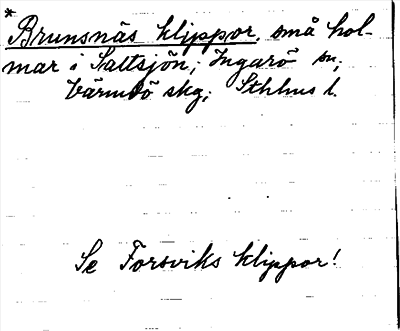 * Brunsnäs klippor, små hol-
mar i Saltsjön; Ingarö sn;
Värmdö skg; Sthlms l.
Se Forsviks klippor!